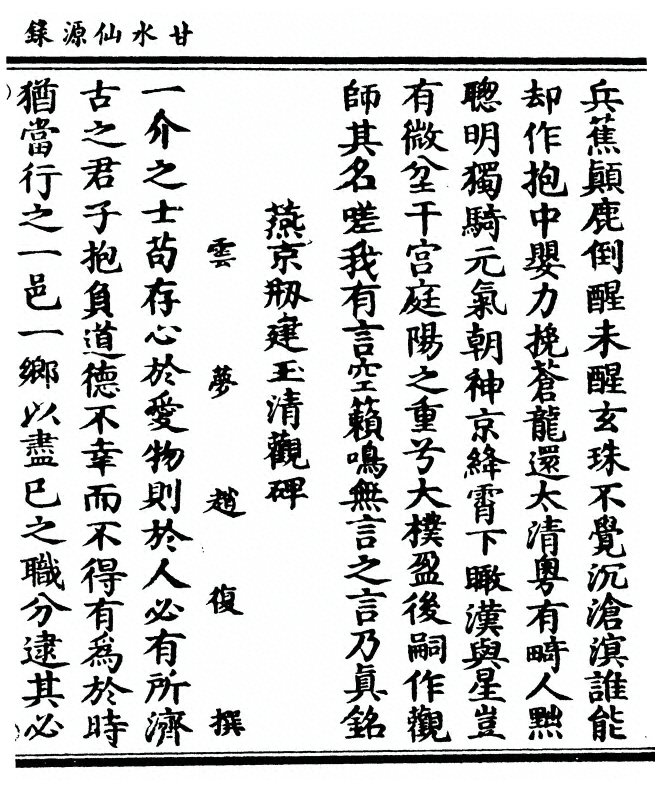 甘水仙源錄
兵蕉顚鹿倒醒未醒玄珠不覺沉滄溟誰能
却作抱中嬰力挽蒼龍還太清粤有畸人黜
聰明獨騎元氣朝神京絳霄下瞰漢與星豈
有微坌干宫庭陽之重兮大樸盈後嗣作觀
師其名嗟我有言空籟鳴無言之言乃眞銘
燕京剏建玉清觀碑
雲夢趙復撰
一介之士苟存心於愛物則於人必有所濟
古之君子抱負道德不幸而不得有爲於時
猶當行之一邑一鄉以盡巳之職分逮其必